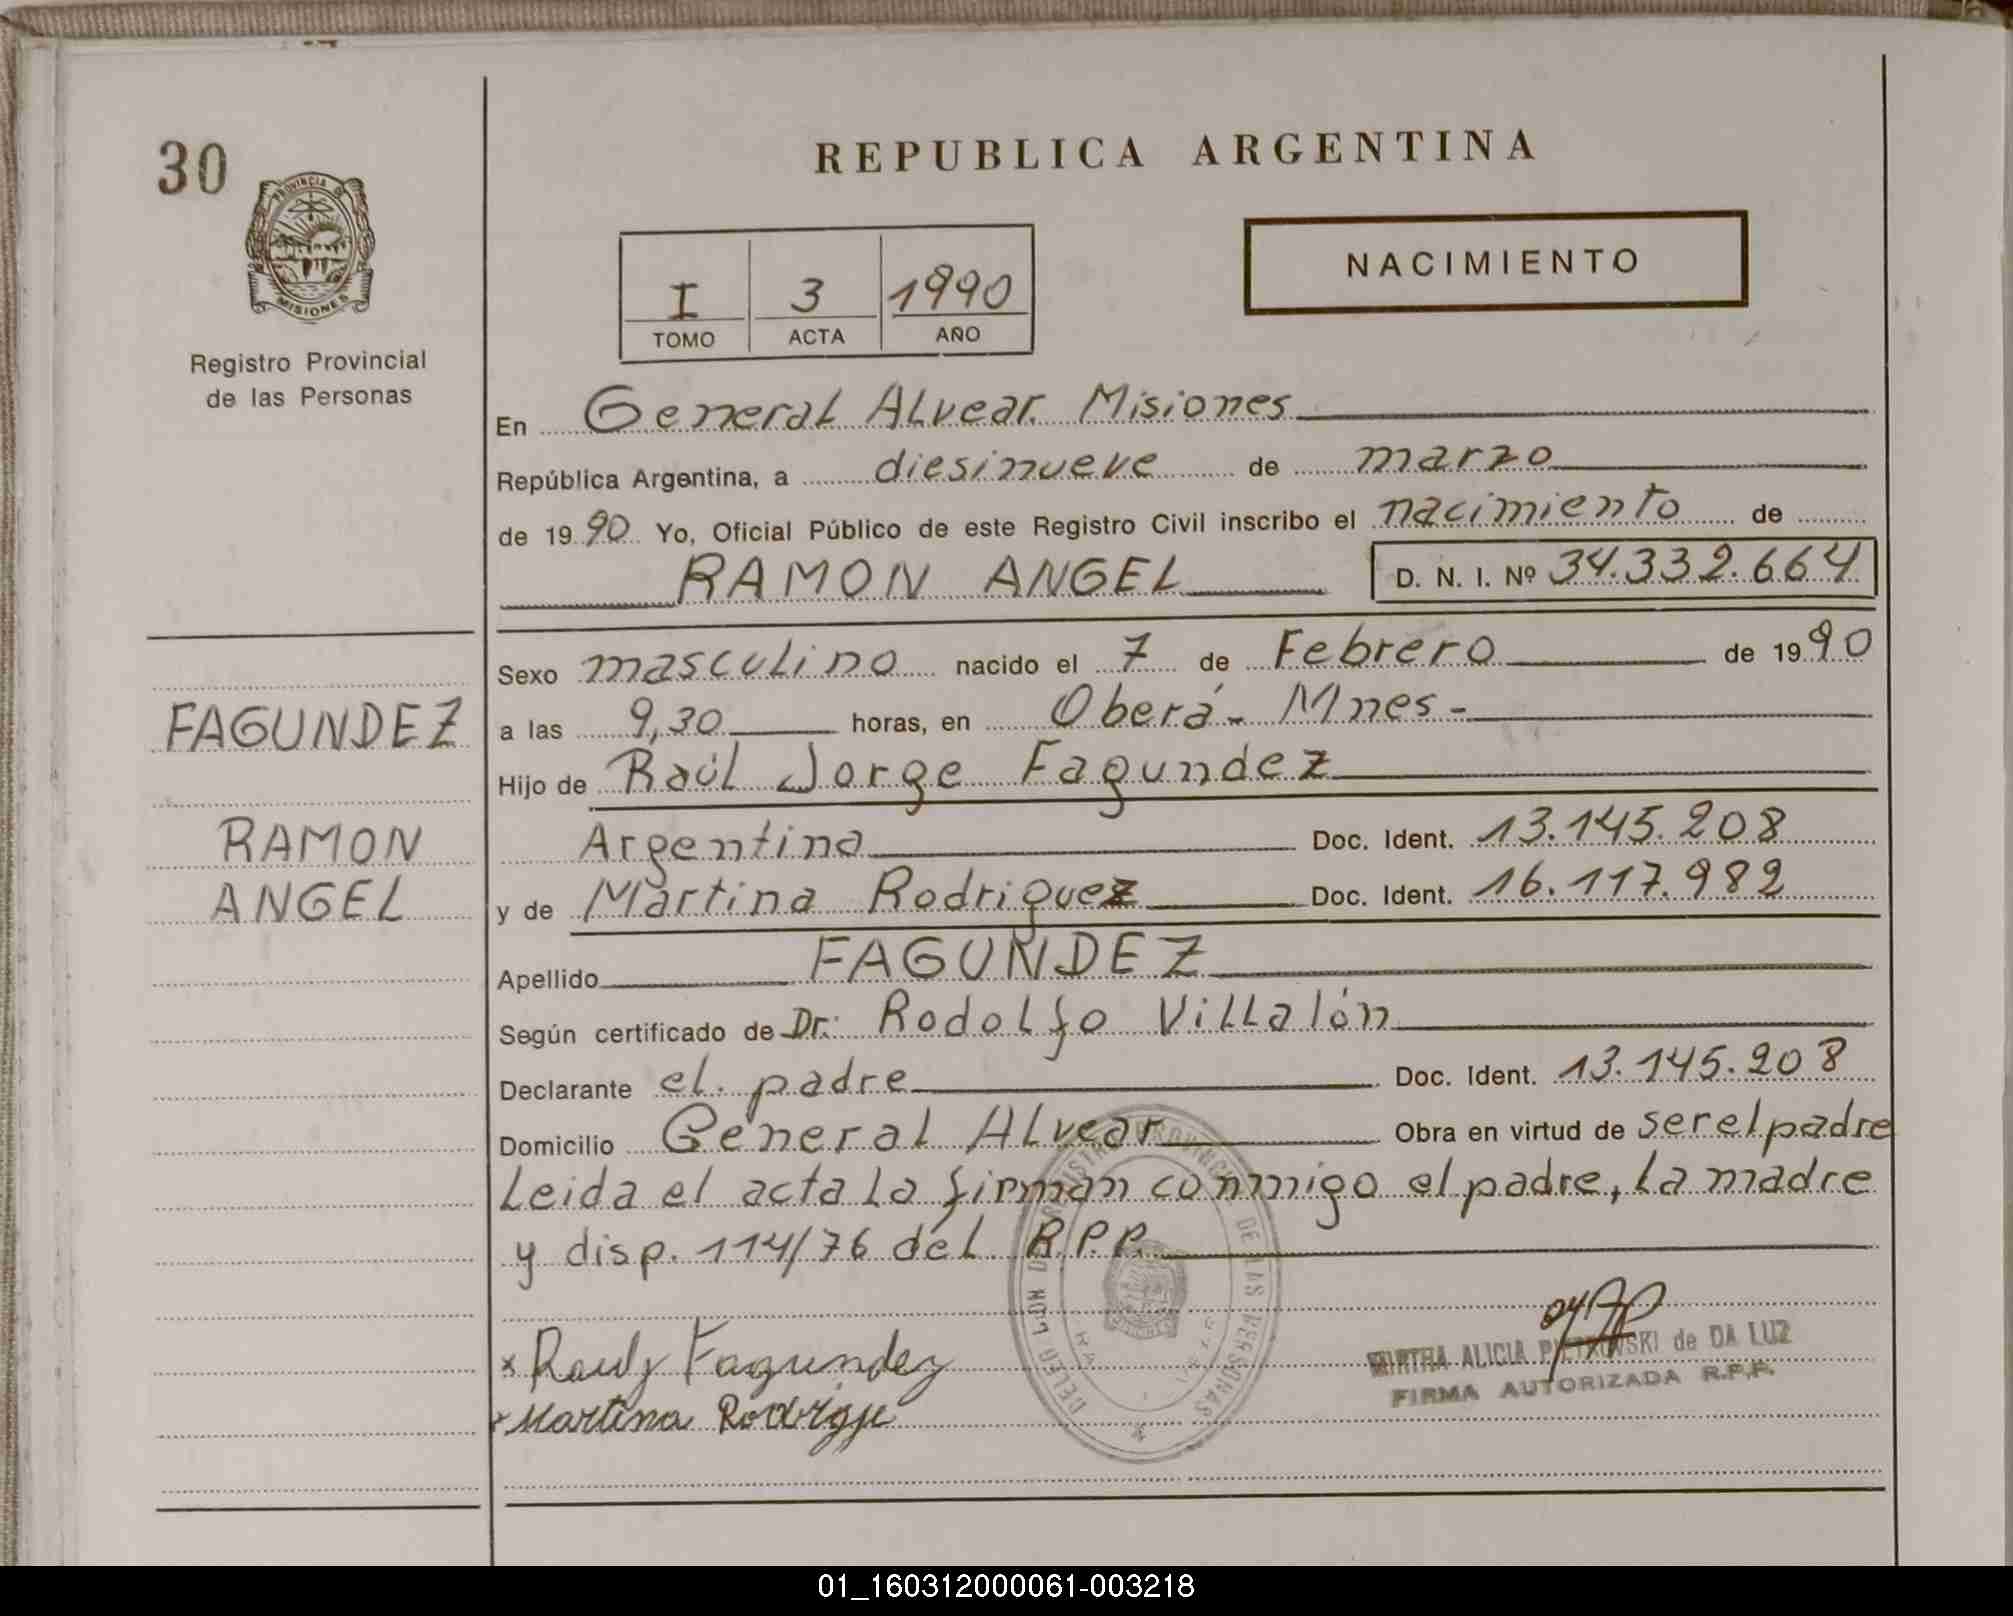 30
REPUBLICA ARGENTINA
PROVINCIA DE
MISIONES
Registro Provincial
de las Personas
I 3 1990
TOMO ACTA AÑO
NACIMIENTO
En General Alvear. Misiones
República Argentina, a diesinueve de marzo
de 1990 Yo, Oficial Público de este Registro Civil inscribo el nacimiento de
RAMON ANGEL D. N. I. Nº 34.332.664
Sexo masculino nacido el 7 de Febrero de 1990
FAGUNDEZ
a las 9,30 horas, en Oberá - Mnes -
Hijo de Raúl Jorge Fagundez
RAMON
Argentina Doc. Ident. 13.145.208
ANGEL
y de Martina Rodriguez Doc. Ident. 16.117.982
Apellido FAGUNDEZ
Según certificado de Dr: Rodolfo Villalón
Declarante el padre Doc. Ident. 13.145.208
Domicilio General Alvear Obra en virtud de ser el padre
Leida el acta la firman conmigo el padre, la madre
y disp. 114/76 del R.P.P.
REGISTRO PROVINCIAL DE LAS PERSONAS
x Raul J Fagundez
MIRTHA ALICIA PIETROWSKI de DA LUZ
FIRMA AUTORIZADA R.P.P.
x Martina Rodrigue
01_160312000061-003218